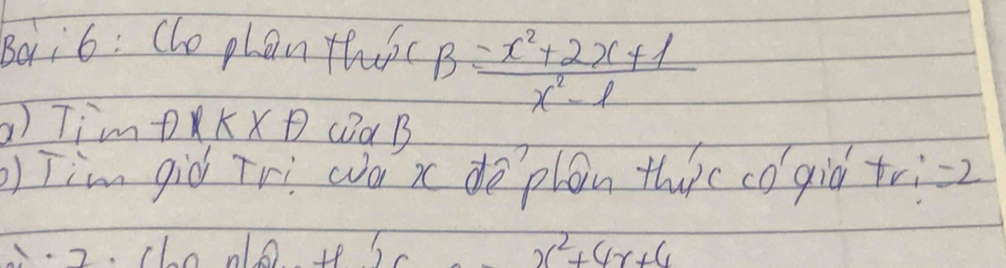 Bài 6: Cho phân thức B = x²+2x+1
x²-1
a) Tìm ĐKXĐ của B
b) Tìm giá trị của x để phân thức có giá trị = 2
Bài 7: Cho phân thức = x²+4x+4